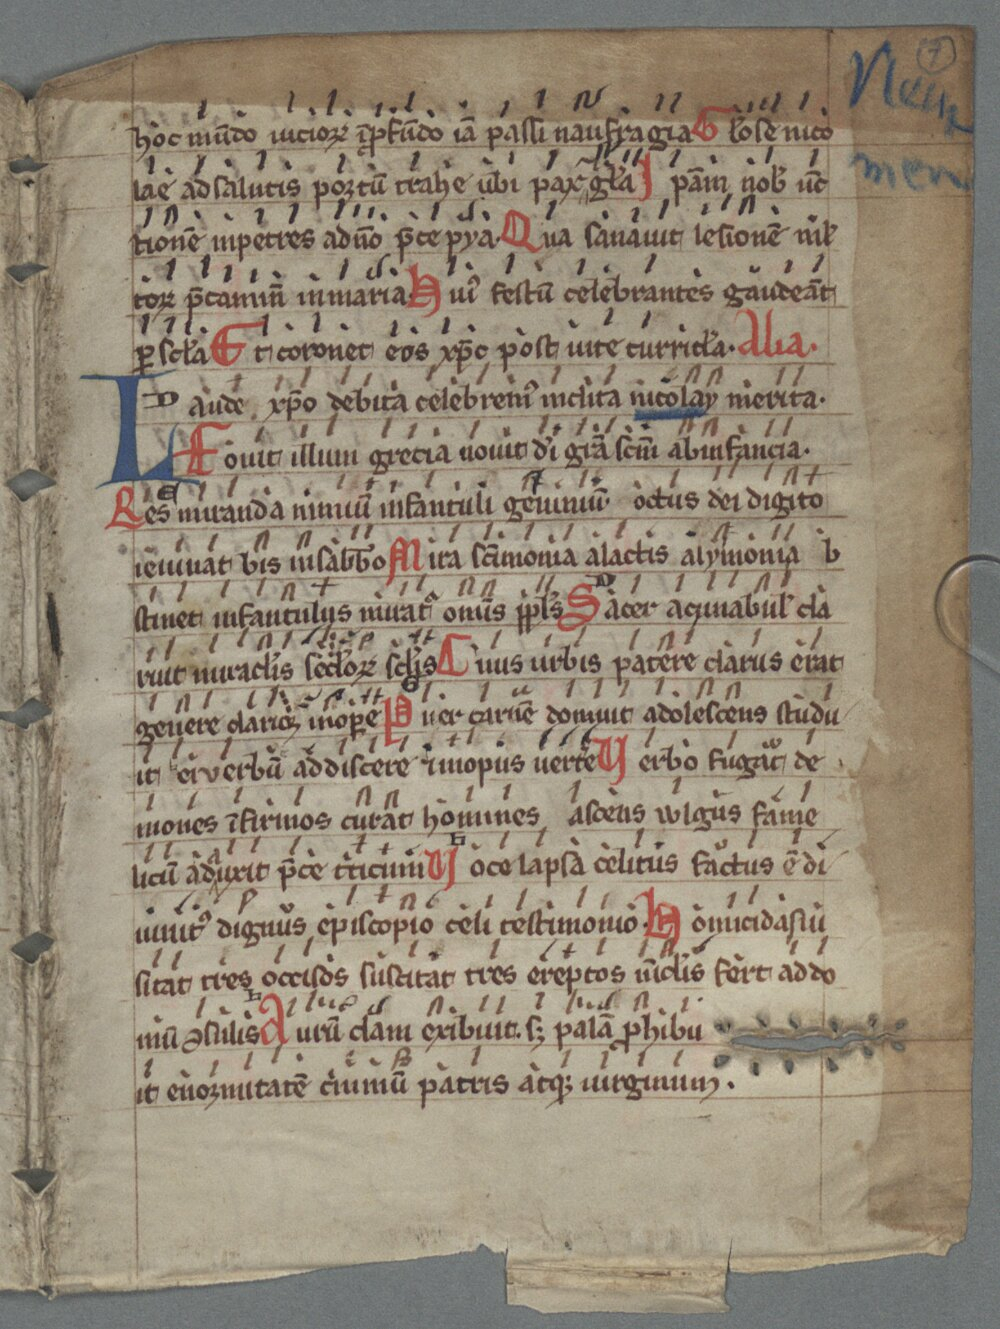 7
Neu
men
hoc mūdo uicioꝝ ꝓfūdo iā passi naufragia Głose nico
lae ad salutis portū trahe ubi pax gła I pām nob̄ ūc
tionē inpetres ad dn̄o p̄ce pya. Qua sanauit lesionē ml̄
toꝝ p̄camin̄ in maria Hui᷒ festū celebrantes gaudeāt
ꝑ scła Et coronet eos xp̄c post uite curricła. Alia.
Laude xp̄o debita celebrem᷒ inclita nicolay merita.
Fouit illum grecia nouit di᷒ grā scm̄ ab infancia.
Res miranda nimiū infantuli geminiū octus dei digito
ieiunat bis in sabb̄o Mira scīmonia a lactis alymonia b
stinet infantulus mirat᷒ omīs ppl̄s Sacer a cunabul̄ cla
ruit miraclis scl̄oꝝ scłis Ciuis urbis patere clarus erat
genere clariꝫ in opere Puer carnē domuit adolescens studu
it ei verbū addiscere ī inopus uerte Uerbo fugat de
mones īfirmos curat homines ascens wlgus fame
licū aduxit p̄ce triticum Uoce lapsa celitus factus ē di
uinit᷒ dignus episcopio celi testimonio. Homicida su
sitat tres occisos suscitat tres ereptos uīclis fert ad do
mū ꝯsulis Aurū clam exibuit. sꝫ palā ꝓhibu
it enormitatē criminū patris atqꝫ uirginum.